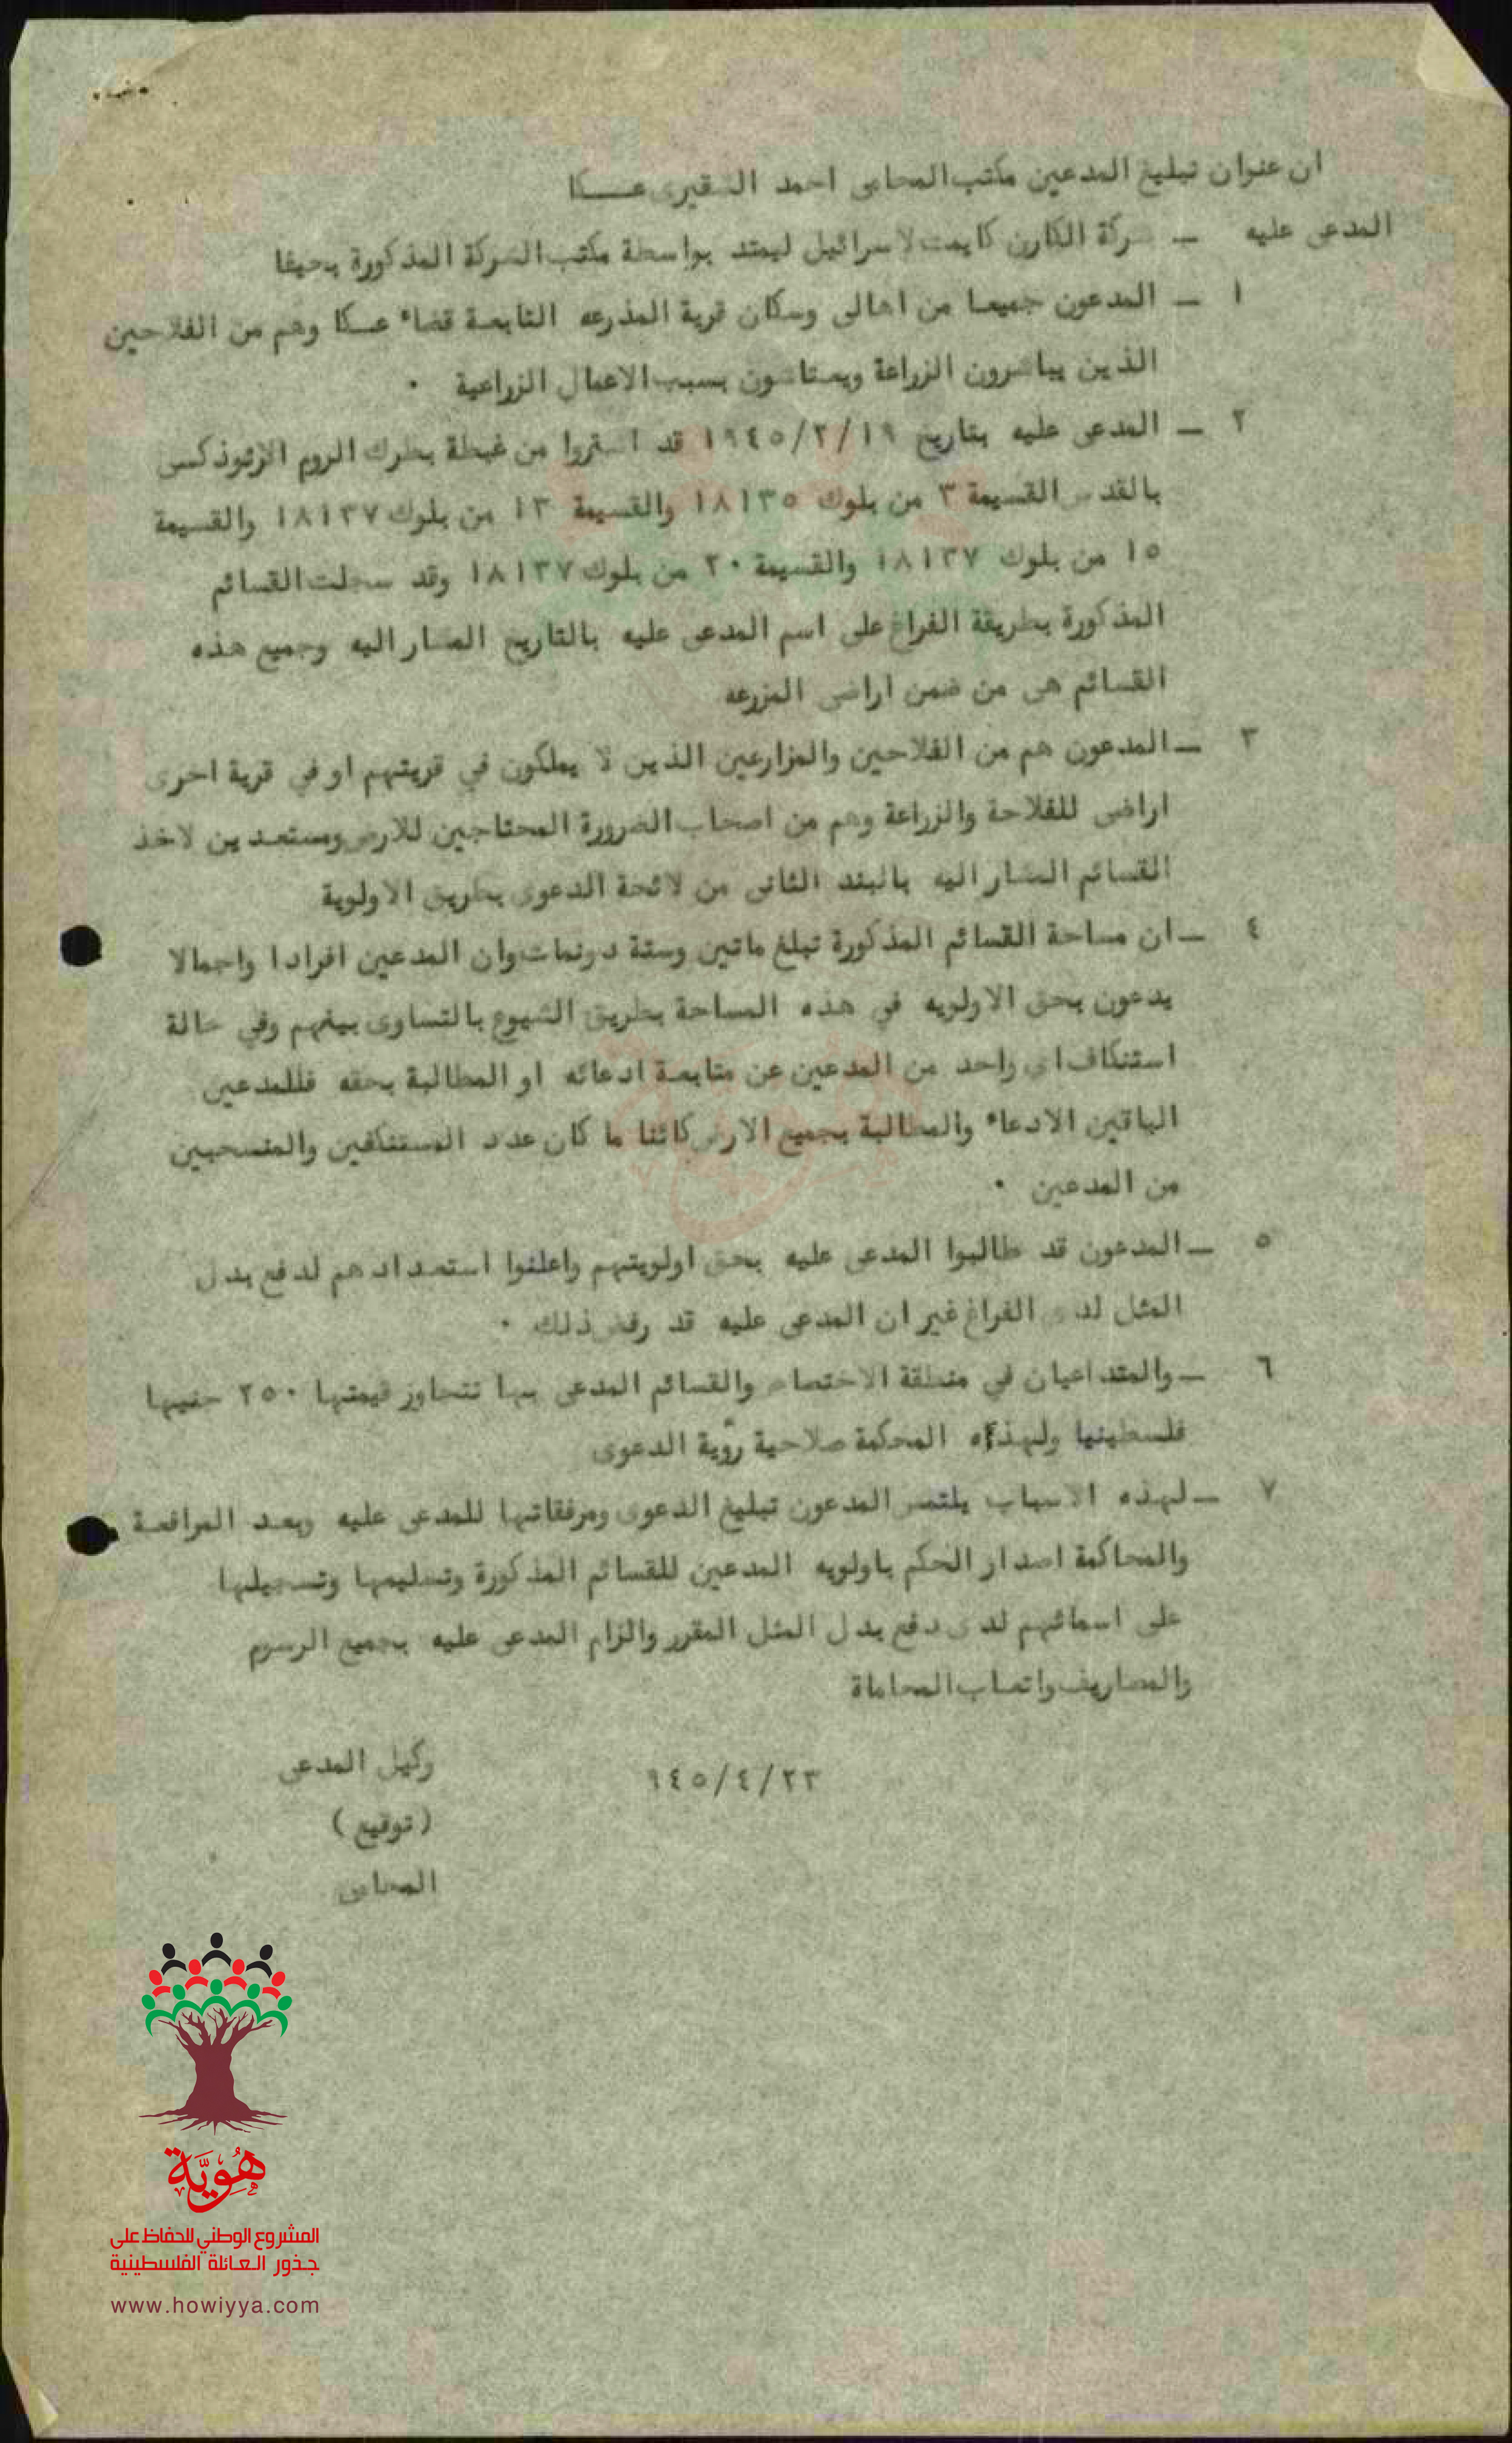 ان عنوان تبليغ المدعين مكتب المحامي احمد الشقيري عكا
المدعى عليه ـ شركة الكارن كايمت لاسرائيل ليمتد بواسطة مكتب الشركة المذكورة بحيفا
١ ـ المدعون جميعا من اهالي وسكان قرية المذرعه التابعة قضاء عكا وهم من الفلاحين
الذين يباشرون الزراعة ويعتاشون بسبب الاعمال الزراعية ٠
٢ ـ المدعى عليه بتاريخ ١٩٤٥/٢/١٩ قد اشتروا من غبطة بطرك الروم الارثوذكس
بالقدس القسيمة ٣ من بلوك ١٨١٣٥ والقسيمة ١٣ من بلوك ١٨١٣٧ والقسيمة
١٥ من بلوك ١٨١٣٧ والقسيمة ٢٠ من بلوك ١٨١٣٧ وقد سجلت القسائم
المذكورة بطريقة الفراغ على اسم المدعى عليه بالتاريخ المشار اليه وجميع هذه
القسائم هى من ضمن اراضى المزرعه
٣ ـ المدعون هم من الفلاحين والمزارعين الذين لا يملكون في قريتهم او في قرية اخرى
اراضى للفلاحة والزراعة وهم من اصحاب الضرورة المحتاجين للارض ومستعدين لاخذ
القسائم المشار اليه بالبند الثانى من لائحة الدعوى بطريق الاولوية
٤ ـ ان مساحة القسائم المذكورة تبلغ ماتين وستة دونمات وان المدعين افرادا واجمالا
يدعون بحق الاولويه في هذه المساحة بطريق الشيوع بالتساوى بينهم وفي حالة
استنكاف اى واحد من المدعين عن متابعة ادعائه او المطالبة بحقه فللمدعين
الباقين الادعاء والمطالبة بجميع الارض كائنا ما كان عدد المستنكفين والمنسحبين
من المدعين ٠
٥ ـ المدعون قد طالبوا المدعى عليه بحق اولويتهم واعلنوا استعدادهم لدفع بدل
المثل لدى الفراغ غير ان المدعى عليه قد رفض ذلك ٠
٦ ـ والمتداعيان في منطقة الاختصاص والقسائم المدعى بها تتجاوز قيمتها ٢٥٠ جنيها
فلسطينيا ولهذه المحكمة صلاحية رؤية الدعوى
٧ ـ لهذه الاسباب يلتمس المدعون تبليغ الدعوى ومرفقاتها للمدعى عليه وبعد المرافعة
والمحاكمة اصدار الحكم باولويه المدعين للقسائم المذكورة وتسليمها وتسجيلها
على اسمائهم لدى دفع بدل المثل المقرر والزام المدعى عليه بجميع الرسوم
والمصاريف واتعاب المحاماة
٩٤٥/٤/٢٣ وكيل المدعى
(توقيع)
المحامى
هُوِيَّة
المشروع الوطني للحفاظ على
جذور العائلة الفلسطينية
www.howiyya.com